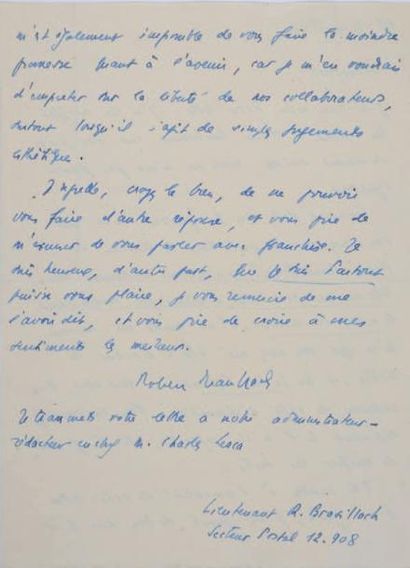 m'est également impossible de vous faire la moindre
promesse quant à l'avenir, car je m'en voudrais
d'empiéter sur la liberté de nos collaborateurs,
surtout lorsqu'il s'agit de simples jugements
esthétiques.
Je regrette, croyez le bien, de ne pouvoir
vous faire d'autre réponse, et vous prie de
m'excuser de vous parler avec franchise. Je
suis heureux, d'autre part, que Je Suis Partout
puisse vous plaire, je vous remercie de me
l'avoir dit, et vous prie de croire à mes
sentiments les meilleurs.
Robert Brasillach
Je transmets votre lettre à notre administrateur-
rédacteur en chef M. Charles Lesca
Lieutenant R. Brasillach
Secteur Postal 12.908